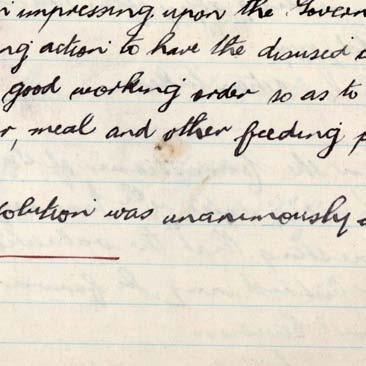 impressing upon the Govern
ng action to have the disused
good working order so as to
r, meal and other feeding p
solution was unanimously a